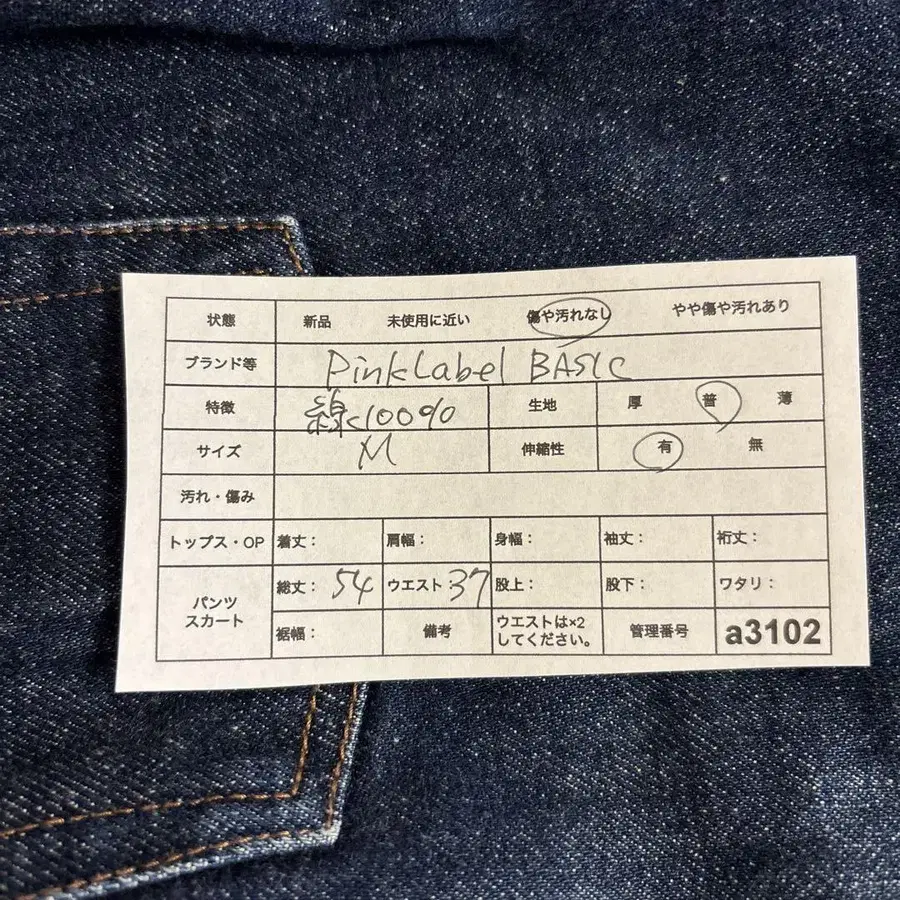 状態 新品 未使用に近い 傷や汚れなし やや傷や汚れあり
ブランド等 PinkLabel BASIC
特徴 綿100% 生地 厚 普 薄
サイズ M 伸縮性 有 無
汚れ・傷み
トップス・OP 着丈: 肩幅: 身幅: 袖丈: 裄丈:
パンツ スカート 総丈: 54 ウエスト:37 股上: 股下: ワタリ:
裾幅: 備考 ウエストは×2 してください。 管理番号 a3102